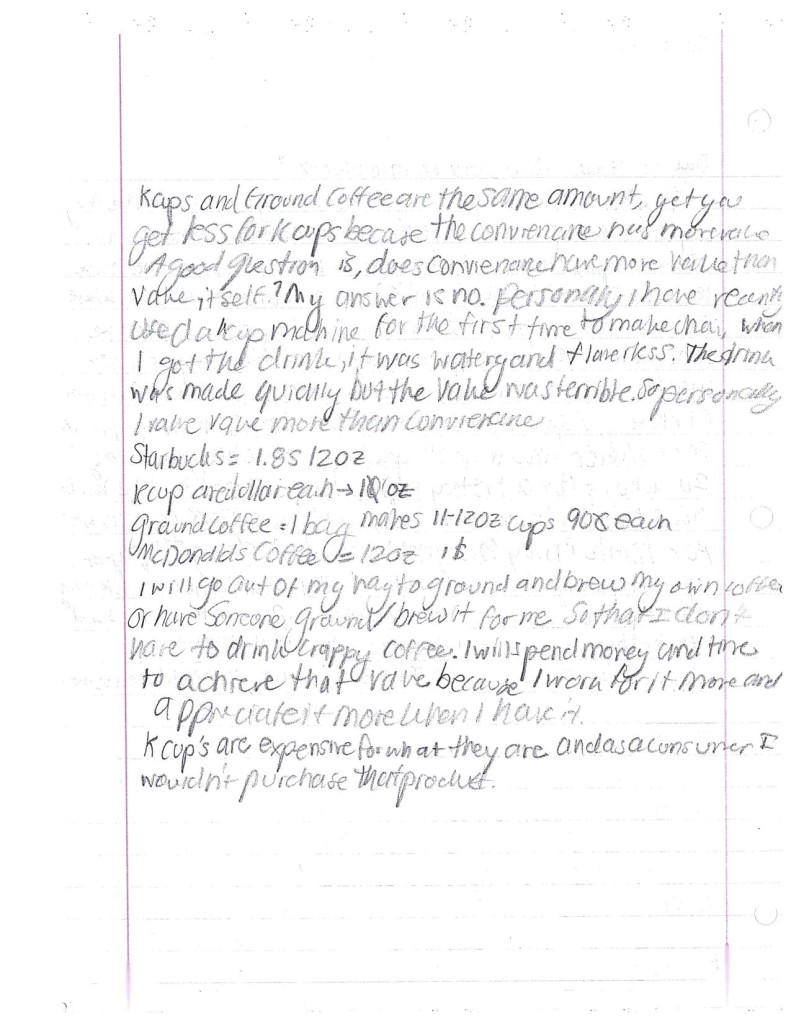 Kcups and Ground Coffee are the same amount, yet you
get less for Kcups becase the convienane has more value
A good question is, does convienane have more value than
Value, itself? My answer is no. Personally I have recently
used a kcup machine for the first time to make chai, when
I got the drink, it was watery and flaverless. The drink
was made quically but the Value was terrible. So personally
I value value more than convienene
Starbucks = 1.85 12oz
kcup are 1 dollar each → 10 oz
Ground coffee = 1 bag makes 11-12oz cups 90¢ each
McDonalds Coffee = 12oz 1$
I will go out of my way to ground and brew my own coffee
or have someone ground/brew it for me so that I don't
have to drink crappy coffee. I will spend money and time
to achieve that value because I work for it more and
appreciate it more when I have it.
Kcup's are expensive for what they are and as a consumer I
wouldn't purchase that product.